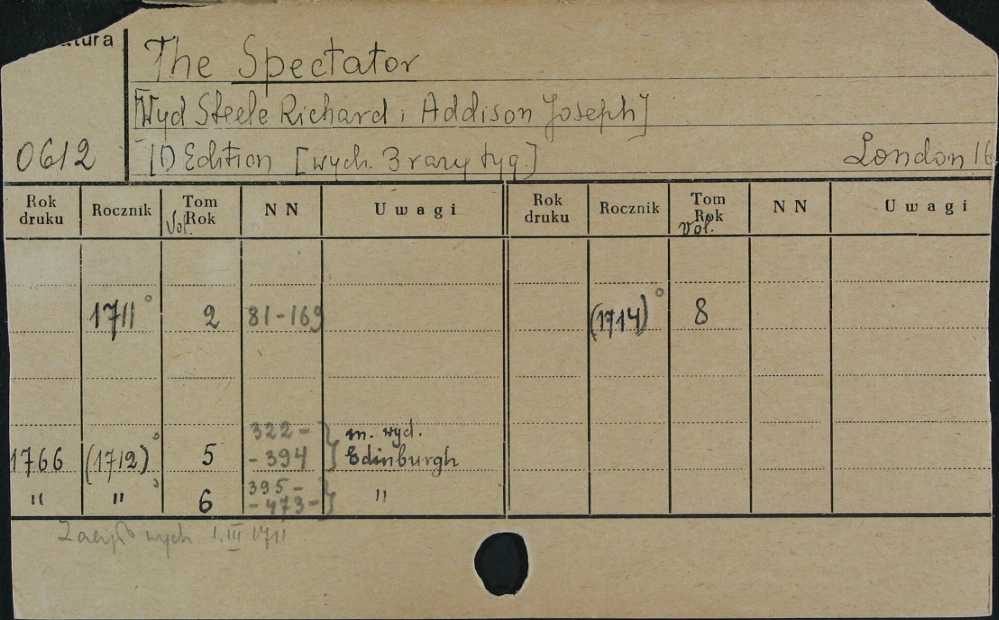 atura
The Spectator
[Wyd Steele Richard i Addison Joseph]
0612
[1) Edition [wych. 3 razy tyg.] London 16
Rok druku Rocznik Tom Rok Vol. NN Uwagi Rok druku Rocznik Tom Rok Vol. NN Uwagi
1711° 2 81-169 (1714)° 8
322- m. wyd.
1766 (1712)° 5 -394 } Edinburgh
" "° 6 395- -473- } "
Zaczęło wych 1.III 1711